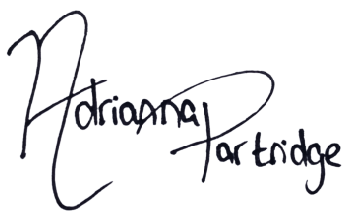 Adrianna
Partridge